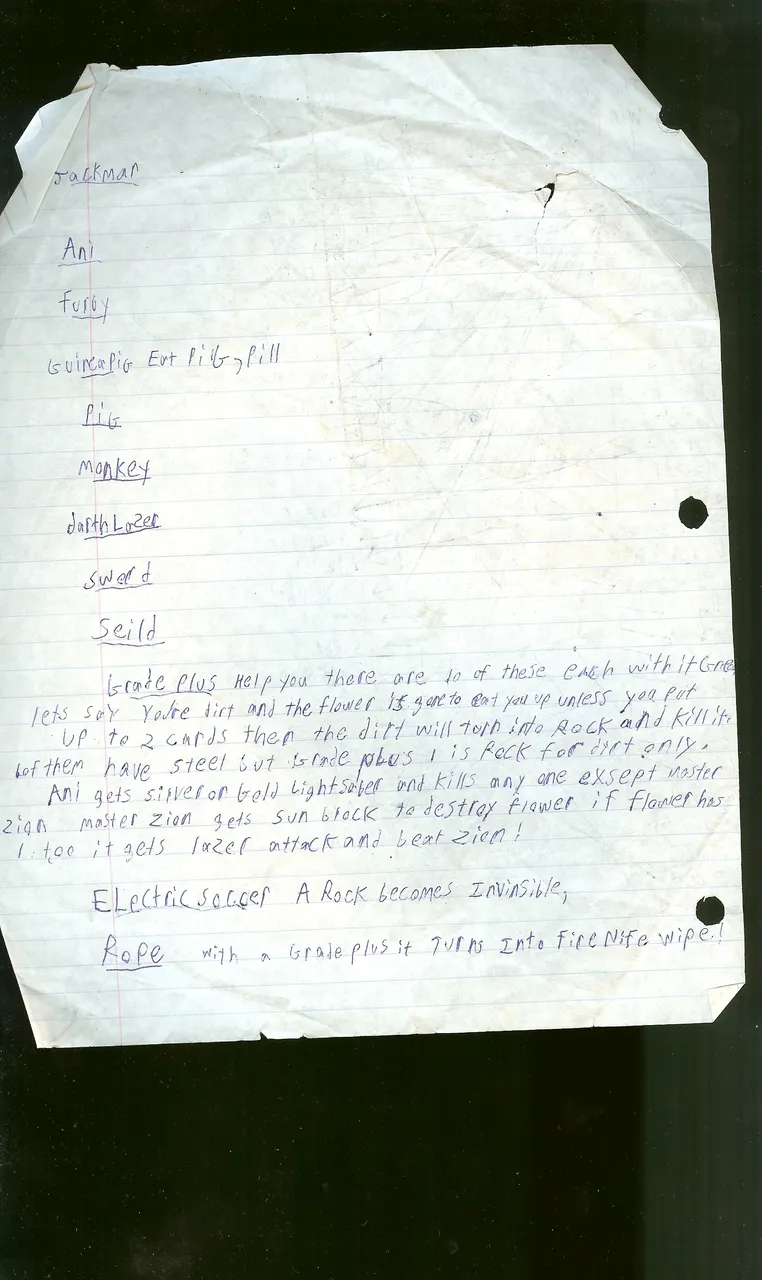 Jackman
Ani
Furby
Guineapig Eat Pig, Pill
Pig
monkey
darthLazer
sword
Seild
Grade plus Help you there are 10 of these each with it
lets say you're dirt and the flower is gone to eat you up unless you put
up to 2 cards then the dirt will turn into Rock and kill it.
of them have steel but Grade plus 1 is Rock for dirt only.
Ani gets silver or Gold Lightsaber and kills any one exsept master
zion master zion gets sun block to destroy flower if flower has
1 too it gets lazer attack and beat zion!
ELectric soccer A Rock becomes Invinsible,
Rope with a Grade plus it Turns Into Fire Nife wipe!